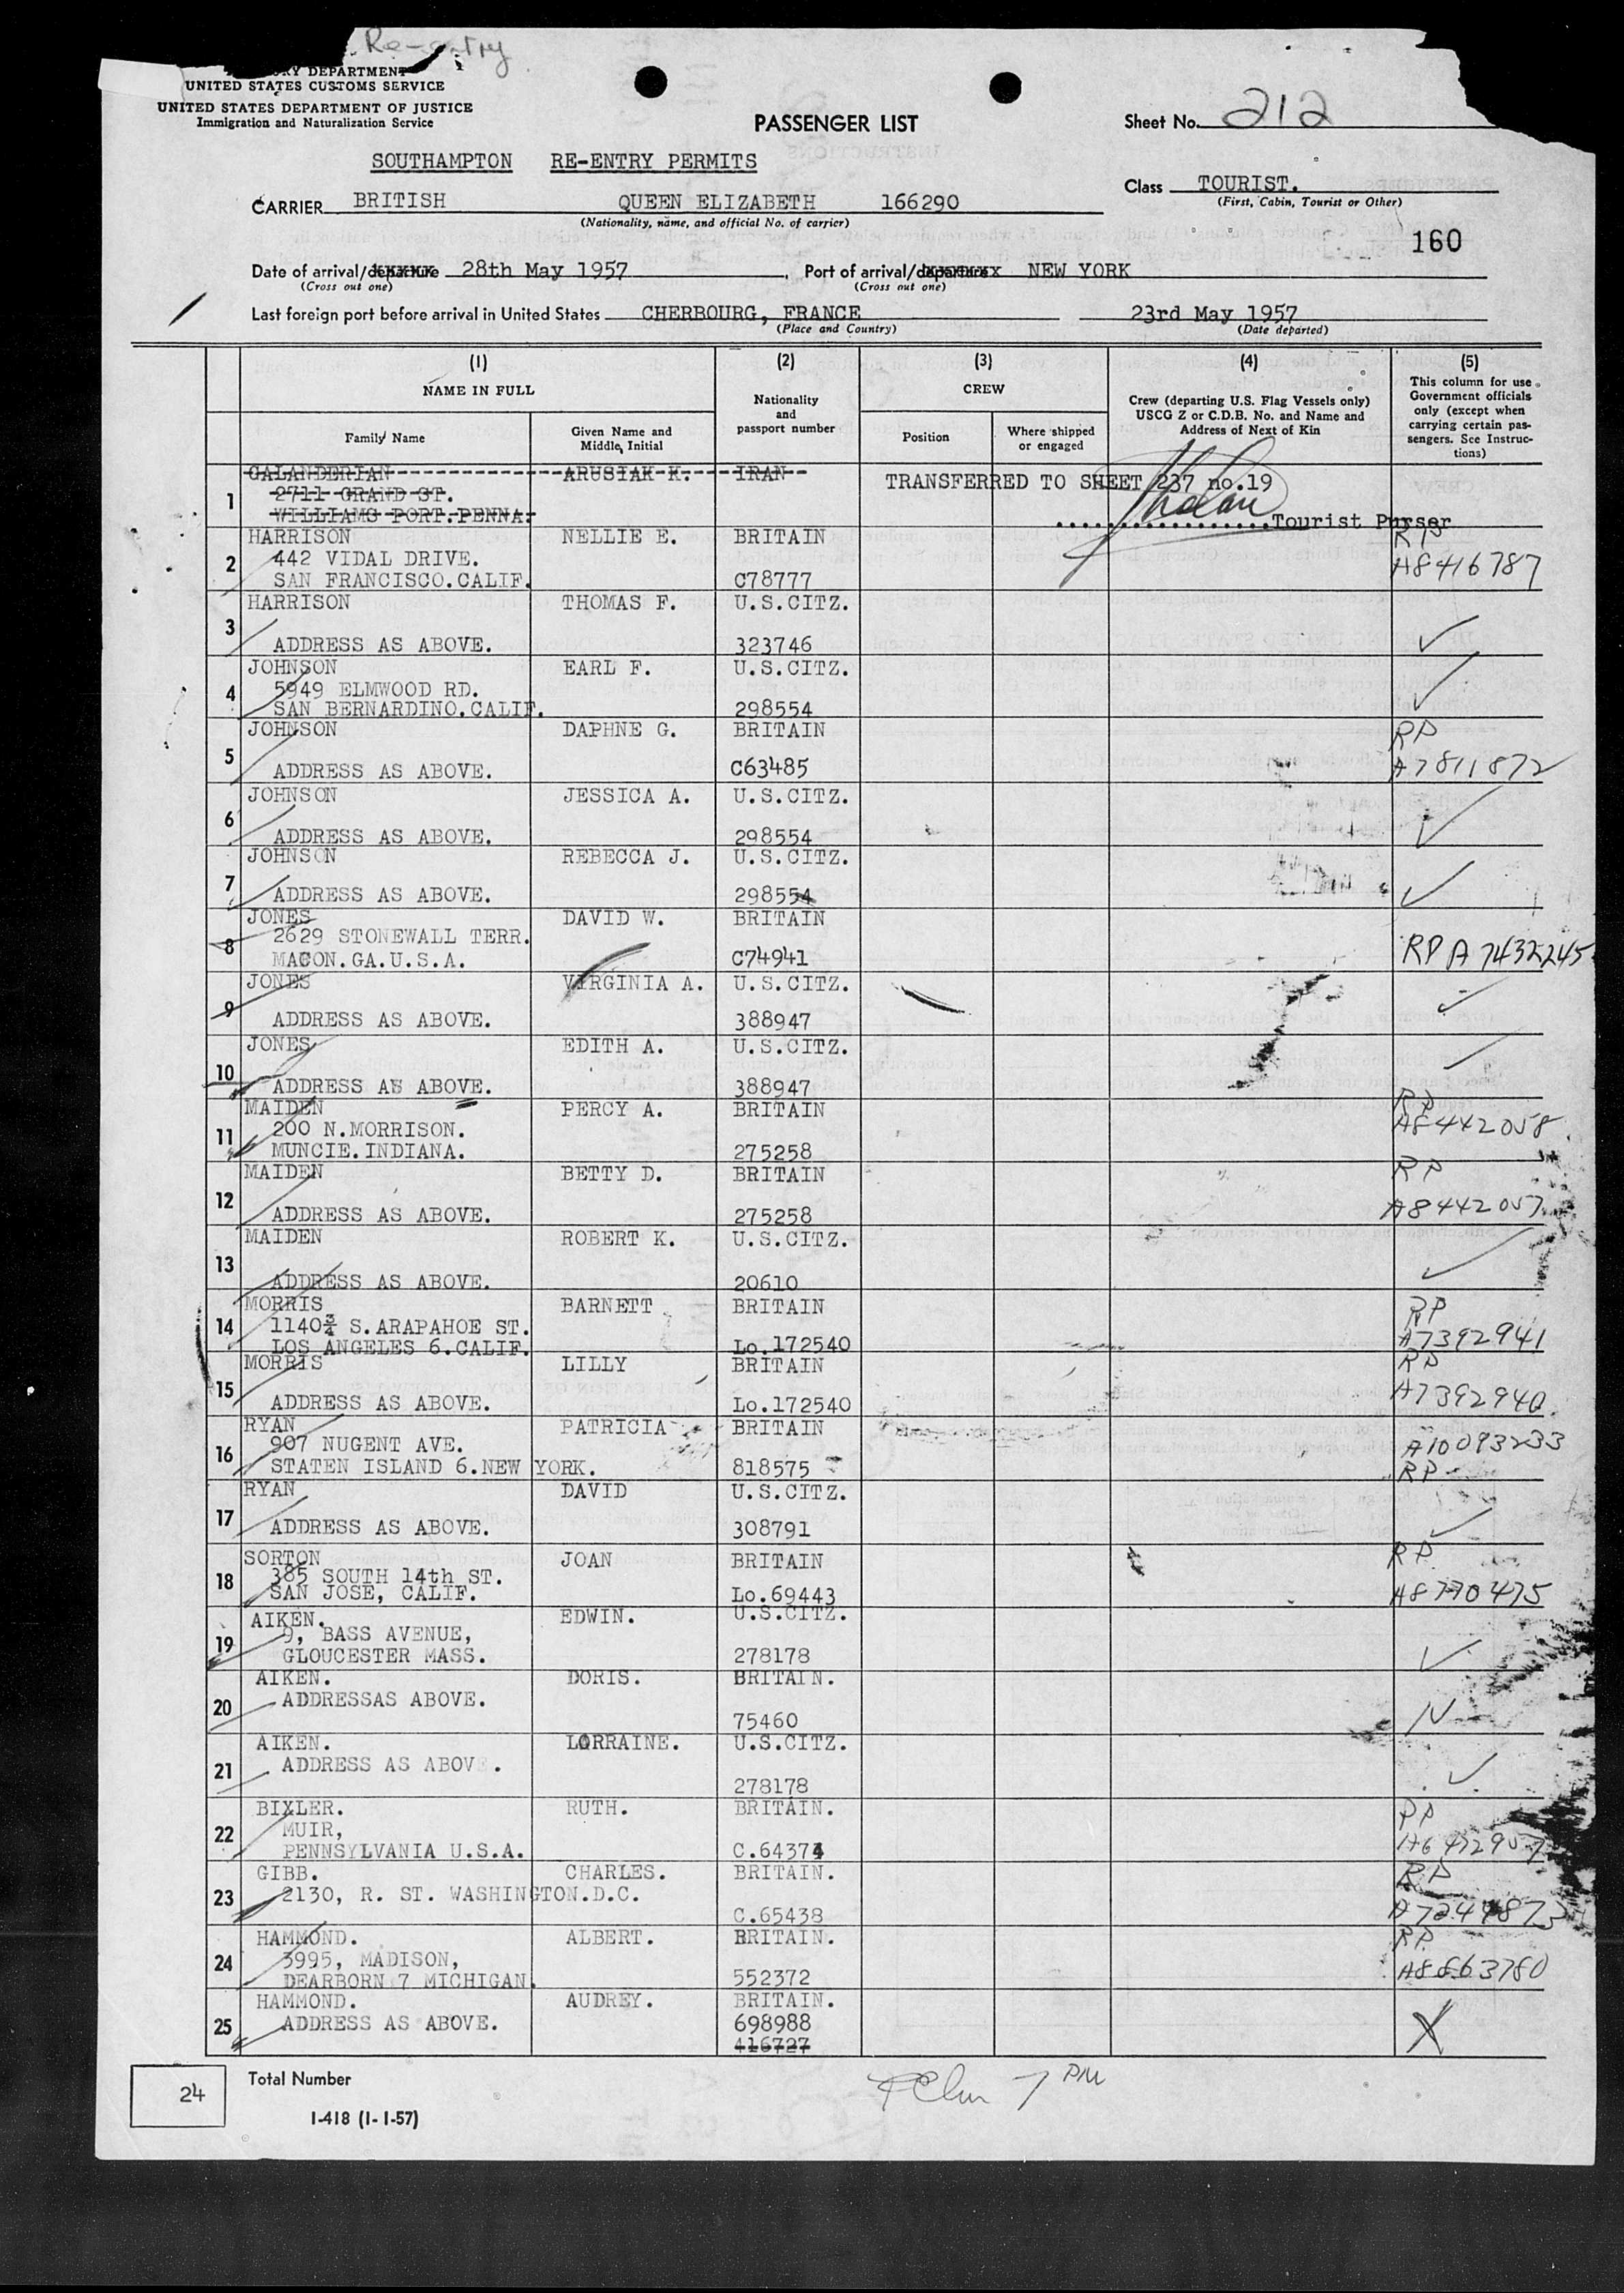 Re-entry
RY DEPARTMENT
UNITED STATES CUSTOMS SERVICE
UNITED STATES DEPARTMENT OF JUSTICE
Immigration and Naturalization Service
PASSENGER LIST
Sheet No. 212
SOUTHAMPTON RE-ENTRY PERMITS
Class TOURIST.
(First, Cabin, Tourist or Other)
CARRIER BRITISH QUEEN ELIZABETH 166290
(Nationality, name, and official No. of carrier)
160
Date of arrival/departure 28th May 1957, Port of arrival/departure NEW YORK
(Cross out one) (Cross out one)
Last foreign port before arrival in United States CHERBOURG, FRANCE 23rd May 1957
(Place and Country) (Date departed)
(1) (2) (3) (4) (5)
NAME IN FULL
Family Name
Given Name and Middle Initial
Nationality and passport number
CREW
Position
Where shipped or engaged
Crew (departing U.S. Flag Vessels only)
USCG Z or C.D.B. No. and Name and
Address of Next of Kin
This column for use
Government officials
only (except when
carrying certain pas-
sengers. See Instruc-
tions)
1 GALANDERIAN ARUSIAK K. IRAN
2711 GRAND ST.
WILLIAMS PORT.PENNA.
TRANSFERRED TO SHEET 237 no.19
Tourist Purser
2 HARRISON NELLIE E. BRITAIN RP
442 VIDAL DRIVE.
SAN FRANCISCO.CALIF. C78777 A8416787
3 HARRISON THOMAS F. U.S.CITZ.
ADDRESS AS ABOVE. 323746 ✓
4 JOHNSON EARL F. U.S.CITZ.
5949 ELMWOOD RD. ✓
SAN BERNARDINO.CALIF. 298554
5 JOHNSON DAPHNE G. BRITAIN RP
ADDRESS AS ABOVE. C63485 A7811872
6 JOHNSON JESSICA A. U.S.CITZ.
ADDRESS AS ABOVE. 298554 ✓
7 JOHNSON REBECCA J. U.S.CITZ.
ADDRESS AS ABOVE. 298554 ✓
8 JONES DAVID W. BRITAIN
2629 STONEWALL TERR.
MACON.GA.U.S.A. C74941 RP A7432245
9 JONES VIRGINIA A. U.S.CITZ.
ADDRESS AS ABOVE. 388947 ✓
10 JONES EDITH A. U.S.CITZ.
ADDRESS AS ABOVE. 388947 ✓
11 MAIDEN PERCY A. BRITAIN RP
200 N.MORRISON. A8442058
MUNCIE.INDIANA. 275258
12 MAIDEN BETTY D. BRITAIN RP
ADDRESS AS ABOVE. 275258 A8442057
13 MAIDEN ROBERT K. U.S.CITZ.
ADDRESS AS ABOVE. 20610 ✓
14 MORRIS BARNETT BRITAIN RP
1140¾ S.ARAPAHOE ST.
LOS ANGELES 6.CALIF. Lo.172540 A7392941
15 MORRIS LILLY BRITAIN RP
ADDRESS AS ABOVE. Lo.172540 A7392940
16 RYAN PATRICIA BRITAIN
907 NUGENT AVE. A10093233
STATEN ISLAND 6.NEW YORK. 818575 RP
17 RYAN DAVID U.S.CITZ.
ADDRESS AS ABOVE. 308791 ✓
18 SORTON JOAN BRITAIN RP
385 SOUTH 14th ST.
SAN JOSE, CALIF. Lo.69443 A8770475
19 AIKEN. EDWIN. U.S.CITZ.
9, BASS AVENUE,
GLOUCESTER MASS. 278178 ✓
20 AIKEN. DORIS. BRITAIN.
ADDRESSAS ABOVE.
75460
21 AIKEN. LORRAINE. U.S.CITZ.
ADDRESS AS ABOV . ✓
278178
22 BIXLER. RUTH. BRITAIN. RP
MUIR,
PENNSYLVANIA U.S.A. C.64374
23 GIBB. CHARLES. BRITAIN. RP
2130, R. ST. WASHINGTON.D.C.
C.65438 A7244873
24 HAMMOND. ALBERT. BRITAIN. RP
3995, MADISON,
DEARBORN 7 MICHIGAN. 552372 A8863780
25 HAMMOND. AUDREY. BRITAIN.
ADDRESS AS ABOVE. 698988 X
416727
24 Total Number
7 PM
I-418 (1-1-57)